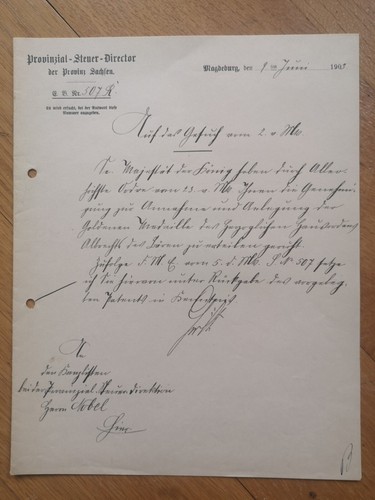 Provinzial-Steuer-Director
der Provinz Sachsen.
Magdeburg, den 9 ten Juni 1905
E. B. No. 507 R
Es wird ersucht, bei der Antwort diese
Nummer anzugeben.
Auf das Gesuch vom 2. v Mts
Se. Majestät der König haben durch Aller-
höchste Ordre vom 23. v Mts. Ihnen die Genehmi-
gung zur Annahme und Anlegung der
Goldenen Medaille des Herzoglichen Hausordens
Albrechts des Bären zu erteilen geruht.
Zufolge F. M. E. vom 5. d. Mts. No 507 setze
ich Sie hiervon unter Rückgabe des vorgeleg-
ten Patents in Kenntniß
An
den Kanzlisten
bei der Provinzial-Steuer-Direktion
Herrn Nobel
Hier